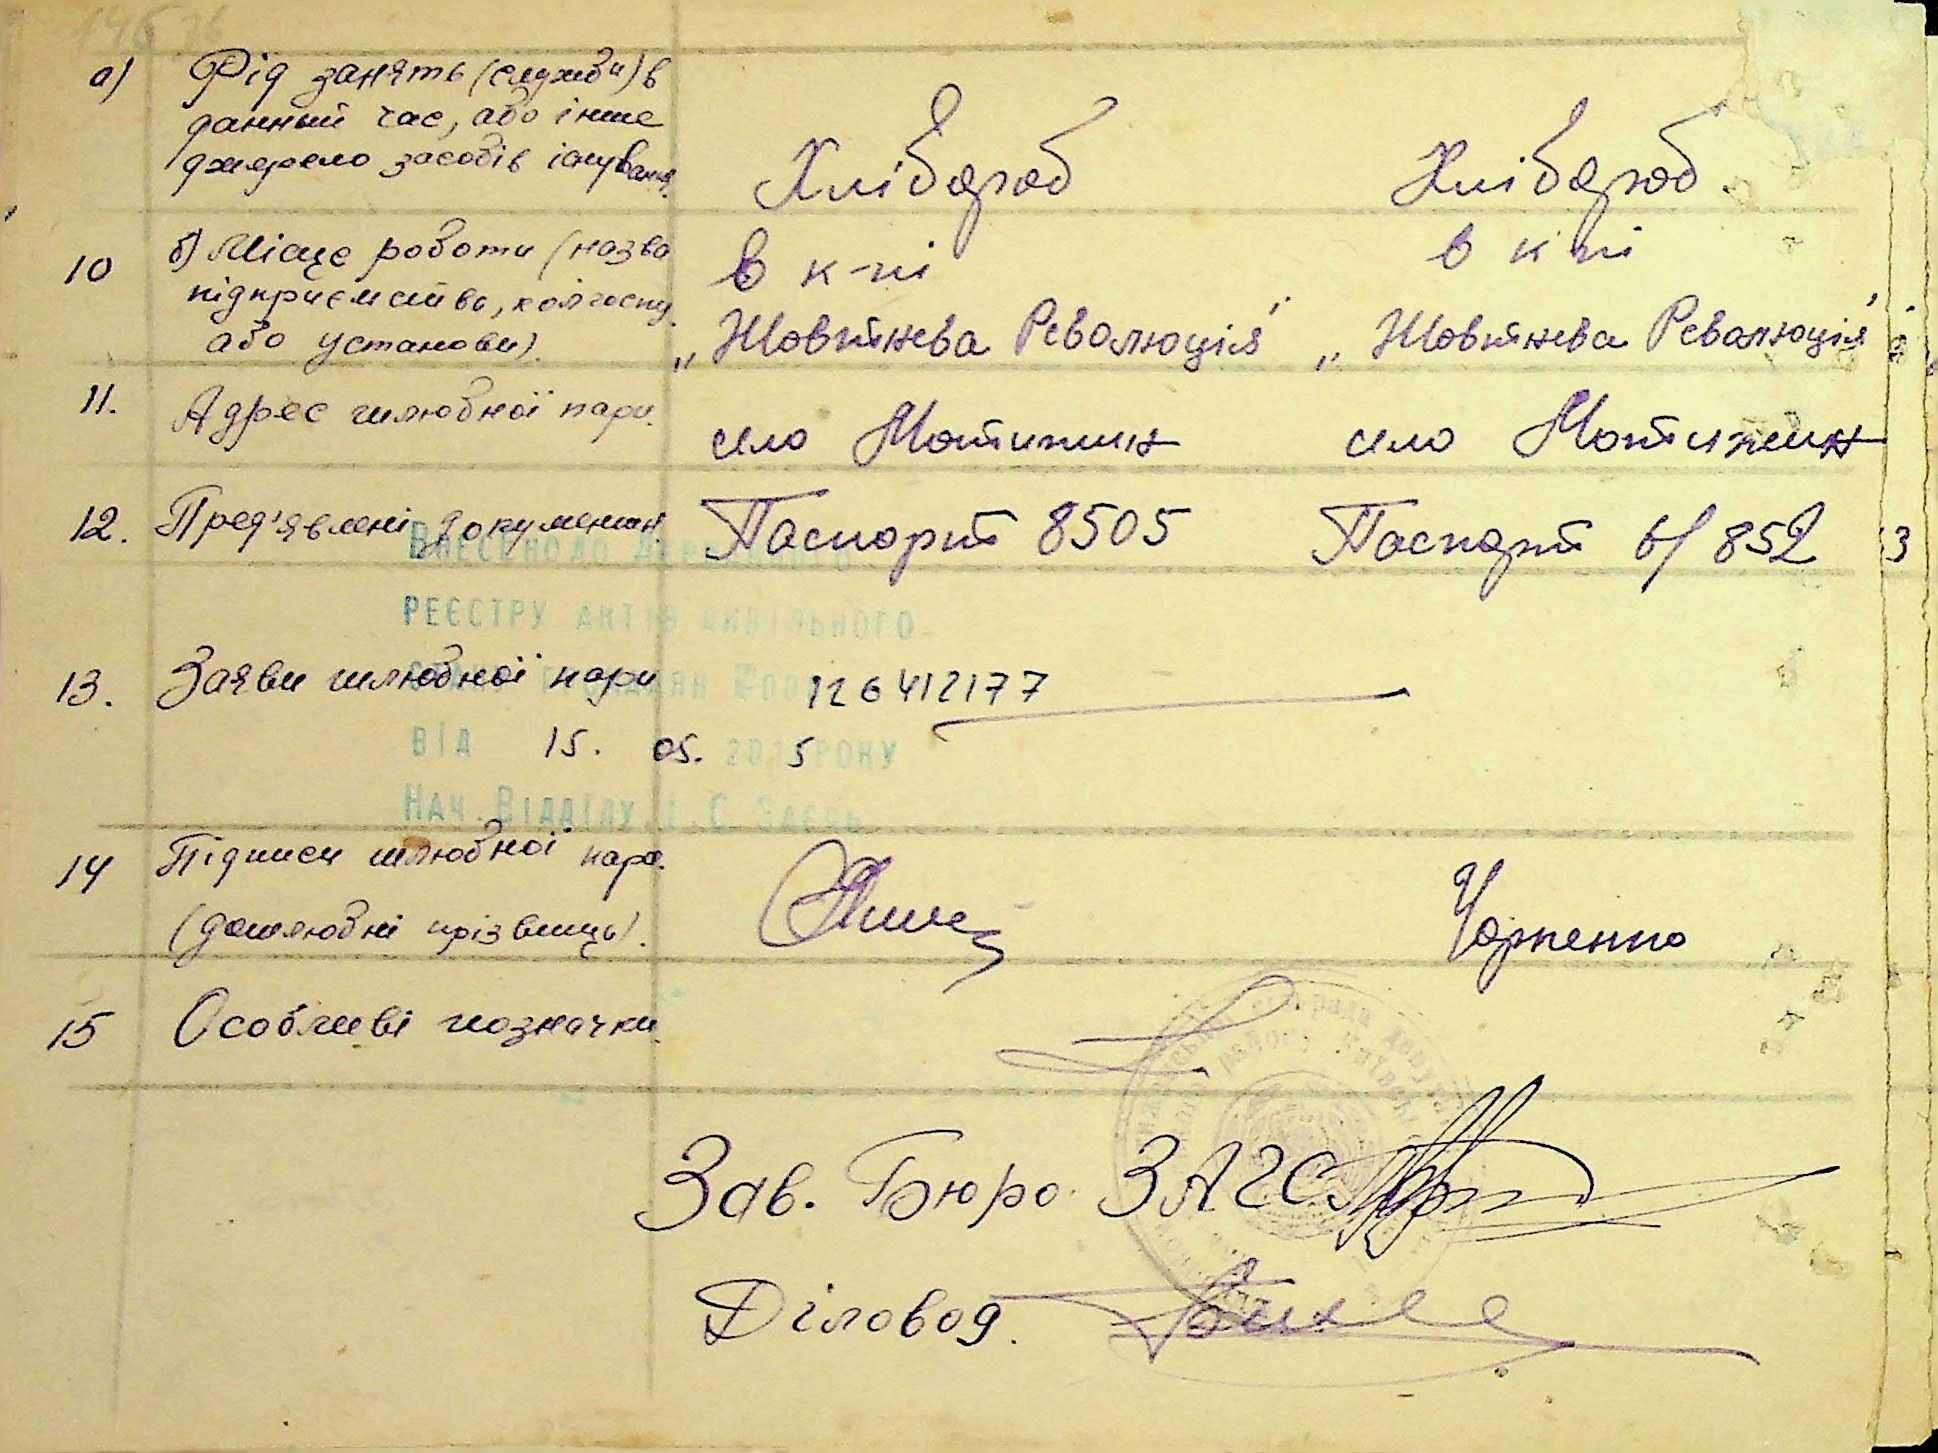 а) Рід занять (служби) в
данный час, або інше
джерело засобів існування.
Хлібороб Хлібороб
10 б) Місце роботи (назва
підприємства, колгоспу
або установи).
в к-пі в к-пі
„Жовтнева Революція" „Жовтнева Революція"
11. Адрес шлюбної пари. село Мотижин село Мотижин
12. Пред'явлені документи. Паспорт 8505 Паспорт б/ 852
Внесено до Державного
реєстру актів цивільного
стану громадян
13. Заяви шлюбної пари 126412177
від 15. 05. 2015 року
Нач. Відділу І.С Заєць
14 Підписи шлюбної пари.
(дошлюбні прізвища).
15 Особливі позначки.
Зав. Бюро ЗАГС
Діловод.